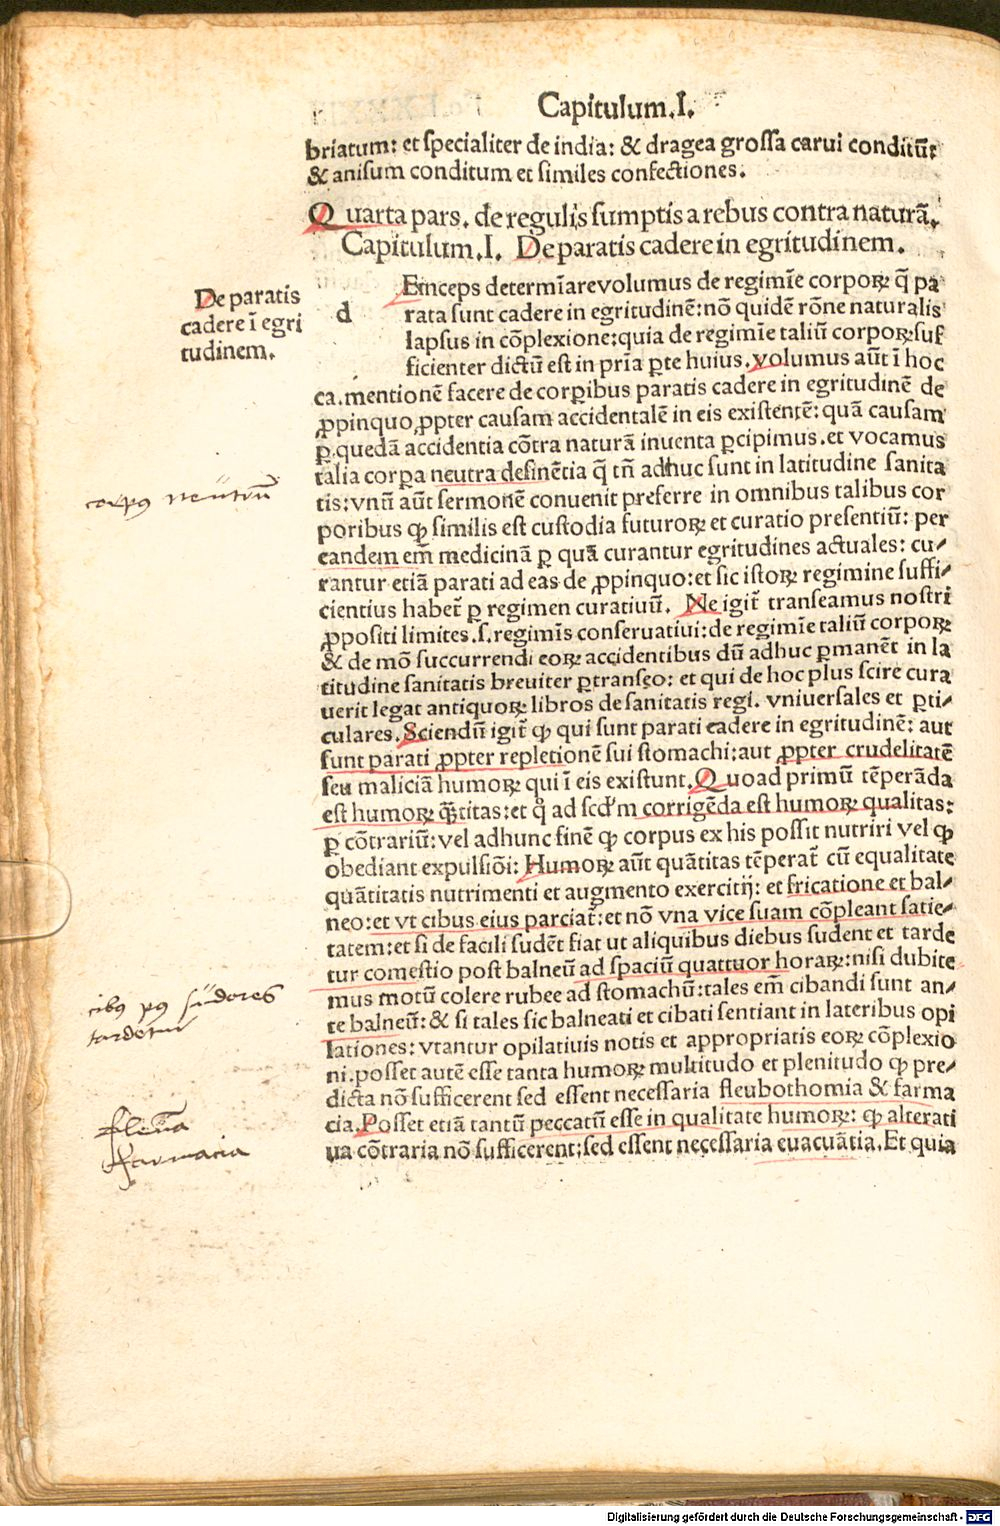 Capitulum.I.
briatum: et specialiter de india: & dragea grossa carui conditū:
& anisum conditum et similes confectiones.
Quarta pars. de regulis sumptis a rebus contra naturā.
Capitulum.I. De paratis cadere in egritudinem.
De paratis
cadere ī egri
tudinem.
d
Einceps determīare volumus de regimīe corporꝝ q̄ pa
rata sunt cadere in egritudinē: nō quidē rōne naturalis
lapsus in cōplexione: quia de regimīe taliū corporꝝ suf
ficienter dictū est in pria ꝑte huius. volumus aūt ī hoc
ca. mentionē facere de corꝑibus paratis cadere in egritudinē de
ꝓpinquo, ꝓpter causam accidentalē in eis existentē: quā causam
ꝑ quedā accidentia cōtra naturā inuenta ꝑcipimus. et vocamus
talia corꝑa neutra desinētia q̄ tn̄ adhuc sunt in latitudine sanita
tis: vnū aūt sermonē conuenit preferre in omnibus talibus cor
poribus ꝙ similis est custodia futuroꝝ et curatio presentiū: per
eandem em̄ medicinā ꝑ quā curantur egritudines actuales: cu-
rantur etiā parati ad eas de ꝓpinquo: et sic istoꝝ regimine suffi-
cientius habet̄ ꝑ regimen curatiuū. Ne igit̄ transeamus nostri
ꝓpositi limites. s. regimīs conseruatiui: de regimīe taliū corporꝝ
& de mō succurrendi eoꝝ accidentibus dū adhuc ꝑmanēt in la
titudine sanitatis breuiter ꝑtranseo: et qui de hoc plus scire cura
uerit legat antiquoꝝ libros de sanitatis regi. vniuersales et ꝑti-
culares. Sciendū igit̄ ꝙ qui sunt parati cadere in egritudinē: aut
sunt parati ꝓpter repletionē sui stomachi: aut ꝓpter crudelitatē
seu maliciā humoꝝ qui ī eis existunt. Quoad primū tēperāda
est humoꝝ q̄titas: et q̊ ad scd'm corrigēda est humoꝝ qualitas:
ꝑ cōtrariū: vel adhunc finē ꝙ corpus ex his possit nutriri vel ꝙ
obediant expulsiōi: Humoꝝ aūt quātitas tēperat̄ cū equalitate
quātitatis nutrimenti et augmento exercitij: et fricatione et bal-
neo: et vt cibus eius parciat̄: et nō vna vice suam cōpleant satie-
tatem: et si de facili sudēt fiat ut aliquibus diebus sudent et tarde
tur comestio post balneū ad spaciū quattuor horaꝝ: nisi dubite
mus motū colere rubee ad stomachū: tales em̄ cibandi sunt an-
te balneū: & si tales sic balneati et cibati sentiant in lateribus opi
lationes: vtantur opilatiuis notis et appropriatis eoꝝ cōplexio
ni. posset autē esse tanta humoꝝ multitudo et plenitudo ꝙ pre-
dicta nō sufficerent sed essent necessaria fleubothomia & farma
cia. Posset etiā tantū peccatū esse in qualitate humoꝝ: ꝙ alterati
ua cōtraria nō sufficerent: sed essent necessaria euacuātia. Et quia
corpꝰ neutrū
cibꝰ pꝰ sudores
tardetur
fleu͞a
farmacia
Digitalisierung gefördert durch die Deutsche Forschungsgemeinschaft - DFG